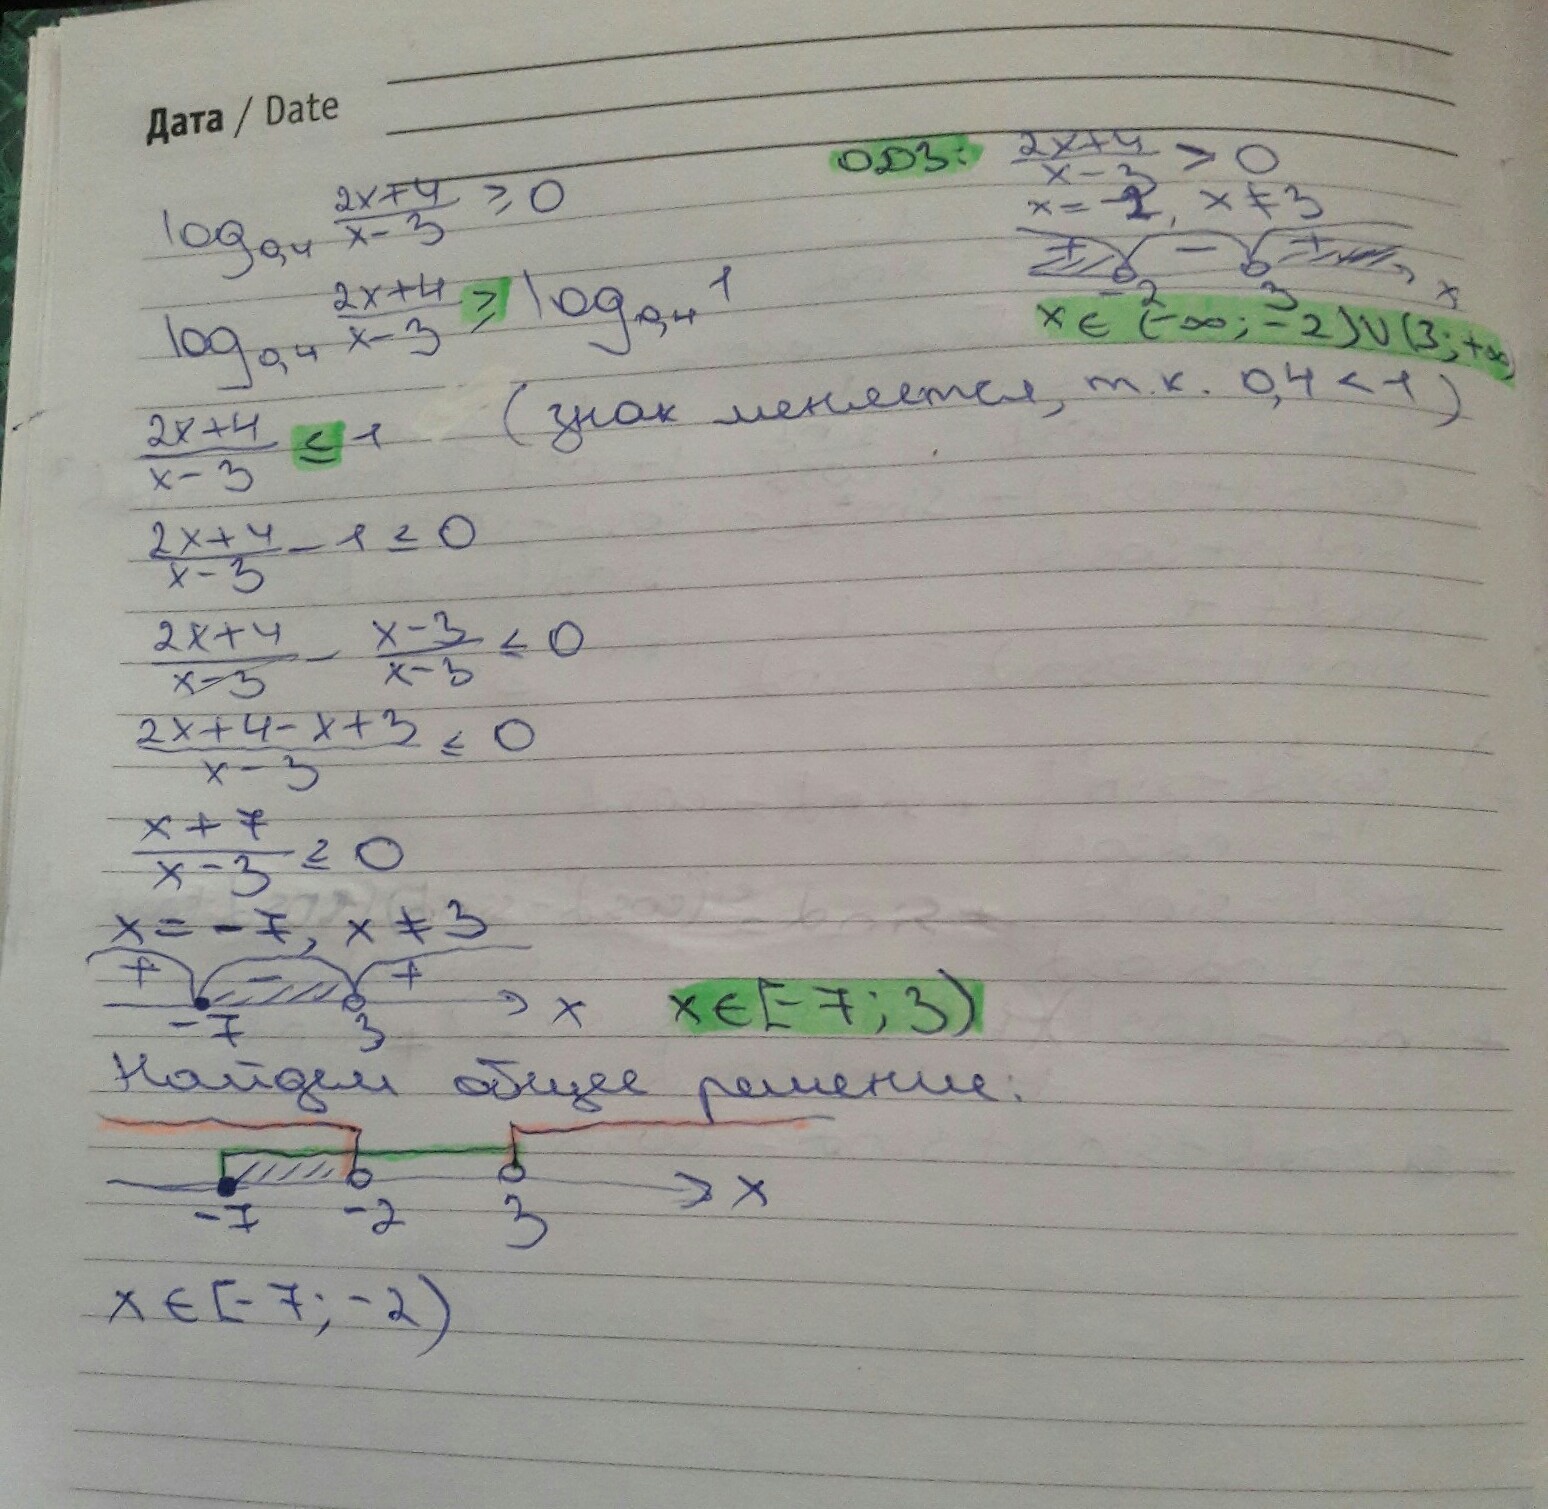 Дата / Date
ОДЗ: (2x+4)/(x-3) > 0
x = -2, x ≠ 3
+ - +
-2 3 x
x ∈ (-∞; -2) ∪ (3; +∞)
log₀,₄ (2x+4)/(x-3) ≥ 0
log₀,₄ (2x+4)/(x-3) ≥ log₀,₄ 1
(2x+4)/(x-3) ≤ 1 (знак меняется, т.к. 0,4 < 1)
(2x+4)/(x-3) - 1 ≤ 0
(2x+4)/(x-3) - (x-3)/(x-3) ≤ 0
(2x+4-x+3)/(x-3) ≤ 0
(x+7)/(x-3) ≤ 0
x = -7, x ≠ 3
+ - +
-7 3 x x ∈ [-7; 3)
Найдем общее решение:
-7 -2 3 x
x ∈ [-7; -2)